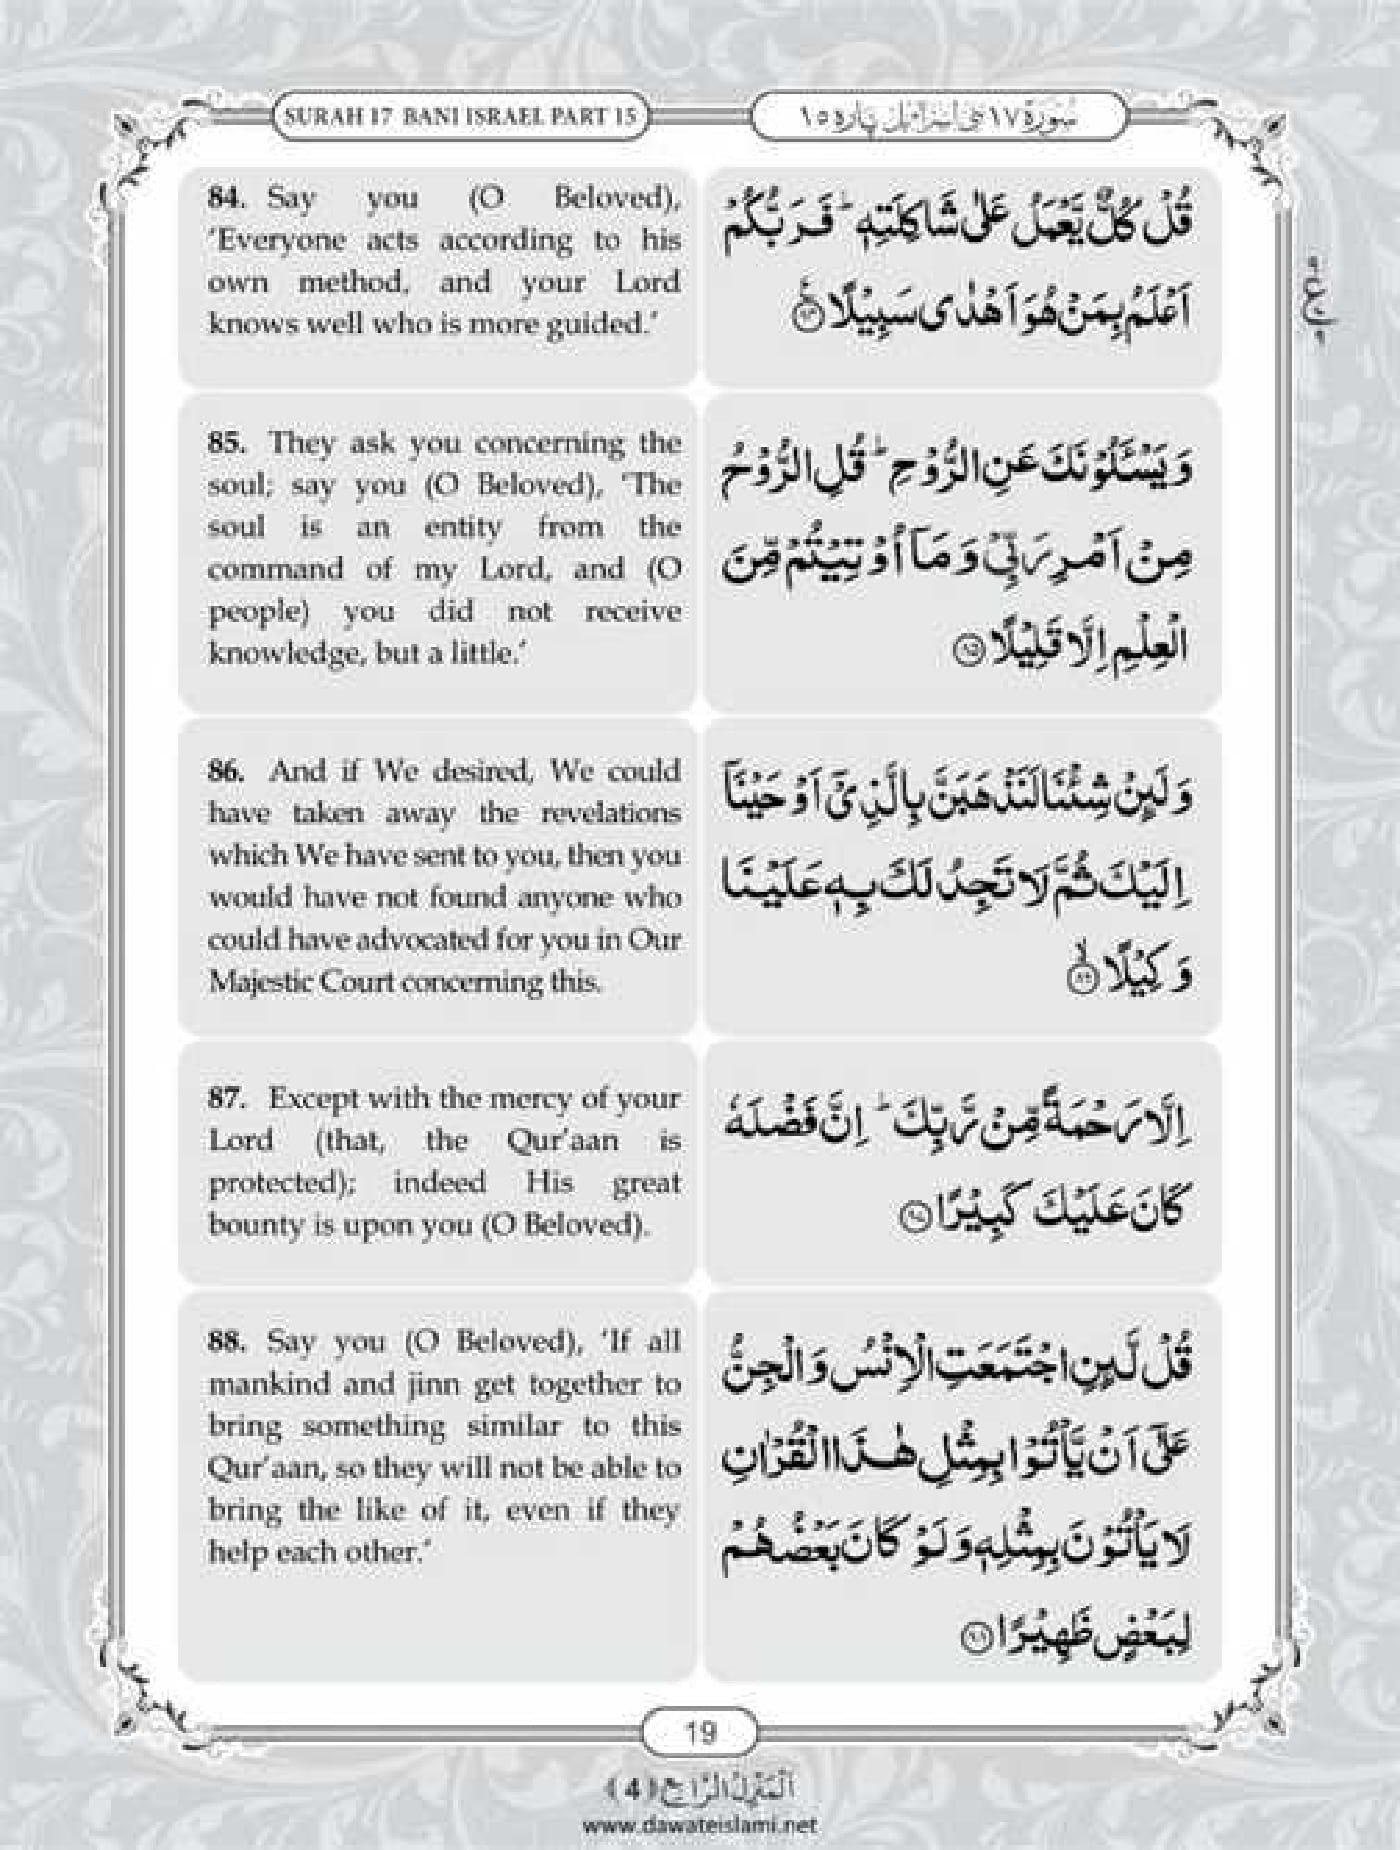 SURAH 17 BANI ISRAEL PART 15
سُورَة ١٧ بنی اسرآءیل پاره ١٥
84. Say you (O Beloved),
‘Everyone acts according to his
own method, and your Lord
knows well who is more guided.’
قُلْ كُلٌّ يَّعْمَلُ عَلٰى شَاكِلَتِهٖ ؕ فَرَبُّكُمْ
اَعْلَمُ بِمَنْ هُوَ اَهْدٰى سَبِيْلًا ۟
85. They ask you concerning the
soul; say you (O Beloved), ‘The
soul is an entity from the
command of my Lord, and (O
people) you did not receive
knowledge, but a little.’
وَ يَسْـَٔلُوْنَكَ عَنِ الرُّوْحِ ؕ قُلِ الرُّوْحُ
مِنْ اَمْرِ رَبِّيْ وَ مَاۤ اُوْتِيْتُمْ مِّنَ
الْعِلْمِ اِلَّا قَلِيْلًا ﴿٨٥﴾
86. And if We desired, We could
have taken away the revelations
which We have sent to you, then you
would have not found anyone who
could have advocated for you in Our
Majestic Court concerning this.
وَ لَىِٕنْ شِئْنَا لَنَذْهَبَنَّ بِالَّذِيْۤ اَوْحَيْنَاۤ
اِلَيْكَ ثُمَّ لَا تَجِدُ لَكَ بِهٖ عَلَيْنَا
وَكِيْلًا ﴿٨٦﴾
87. Except with the mercy of your
Lord (that, the Qur’aan is
protected); indeed His great
bounty is upon you (O Beloved).
اِلَّا رَحْمَةً مِّنْ رَّبِّكَ ؕ اِنَّ فَضْلَهٗ
كَانَ عَلَيْكَ كَبِيْرًا ﴿٨٧﴾
88. Say you (O Beloved), ‘If all
mankind and jinn get together to
bring something similar to this
Qur’aan, so they will not be able to
bring the like of it, even if they
help each other.’
قُلْ لَّىِٕنِ اجْتَمَعَتِ الْاِنْسُ وَ الْجِنُّ
عَلٰۤى اَنْ يَّاْتُوْا بِمِثْلِ هٰذَا الْقُرْاٰنِ
لَا يَاْتُوْنَ بِمِثْلِهٖ وَ لَوْ كَانَ بَعْضُهُمْ
لِبَعْضٍ ظَهِيْرًا ﴿٨٨﴾
19
اَلْمَنْزِلُ الرَّابِع (4)
www.dawateislami.net